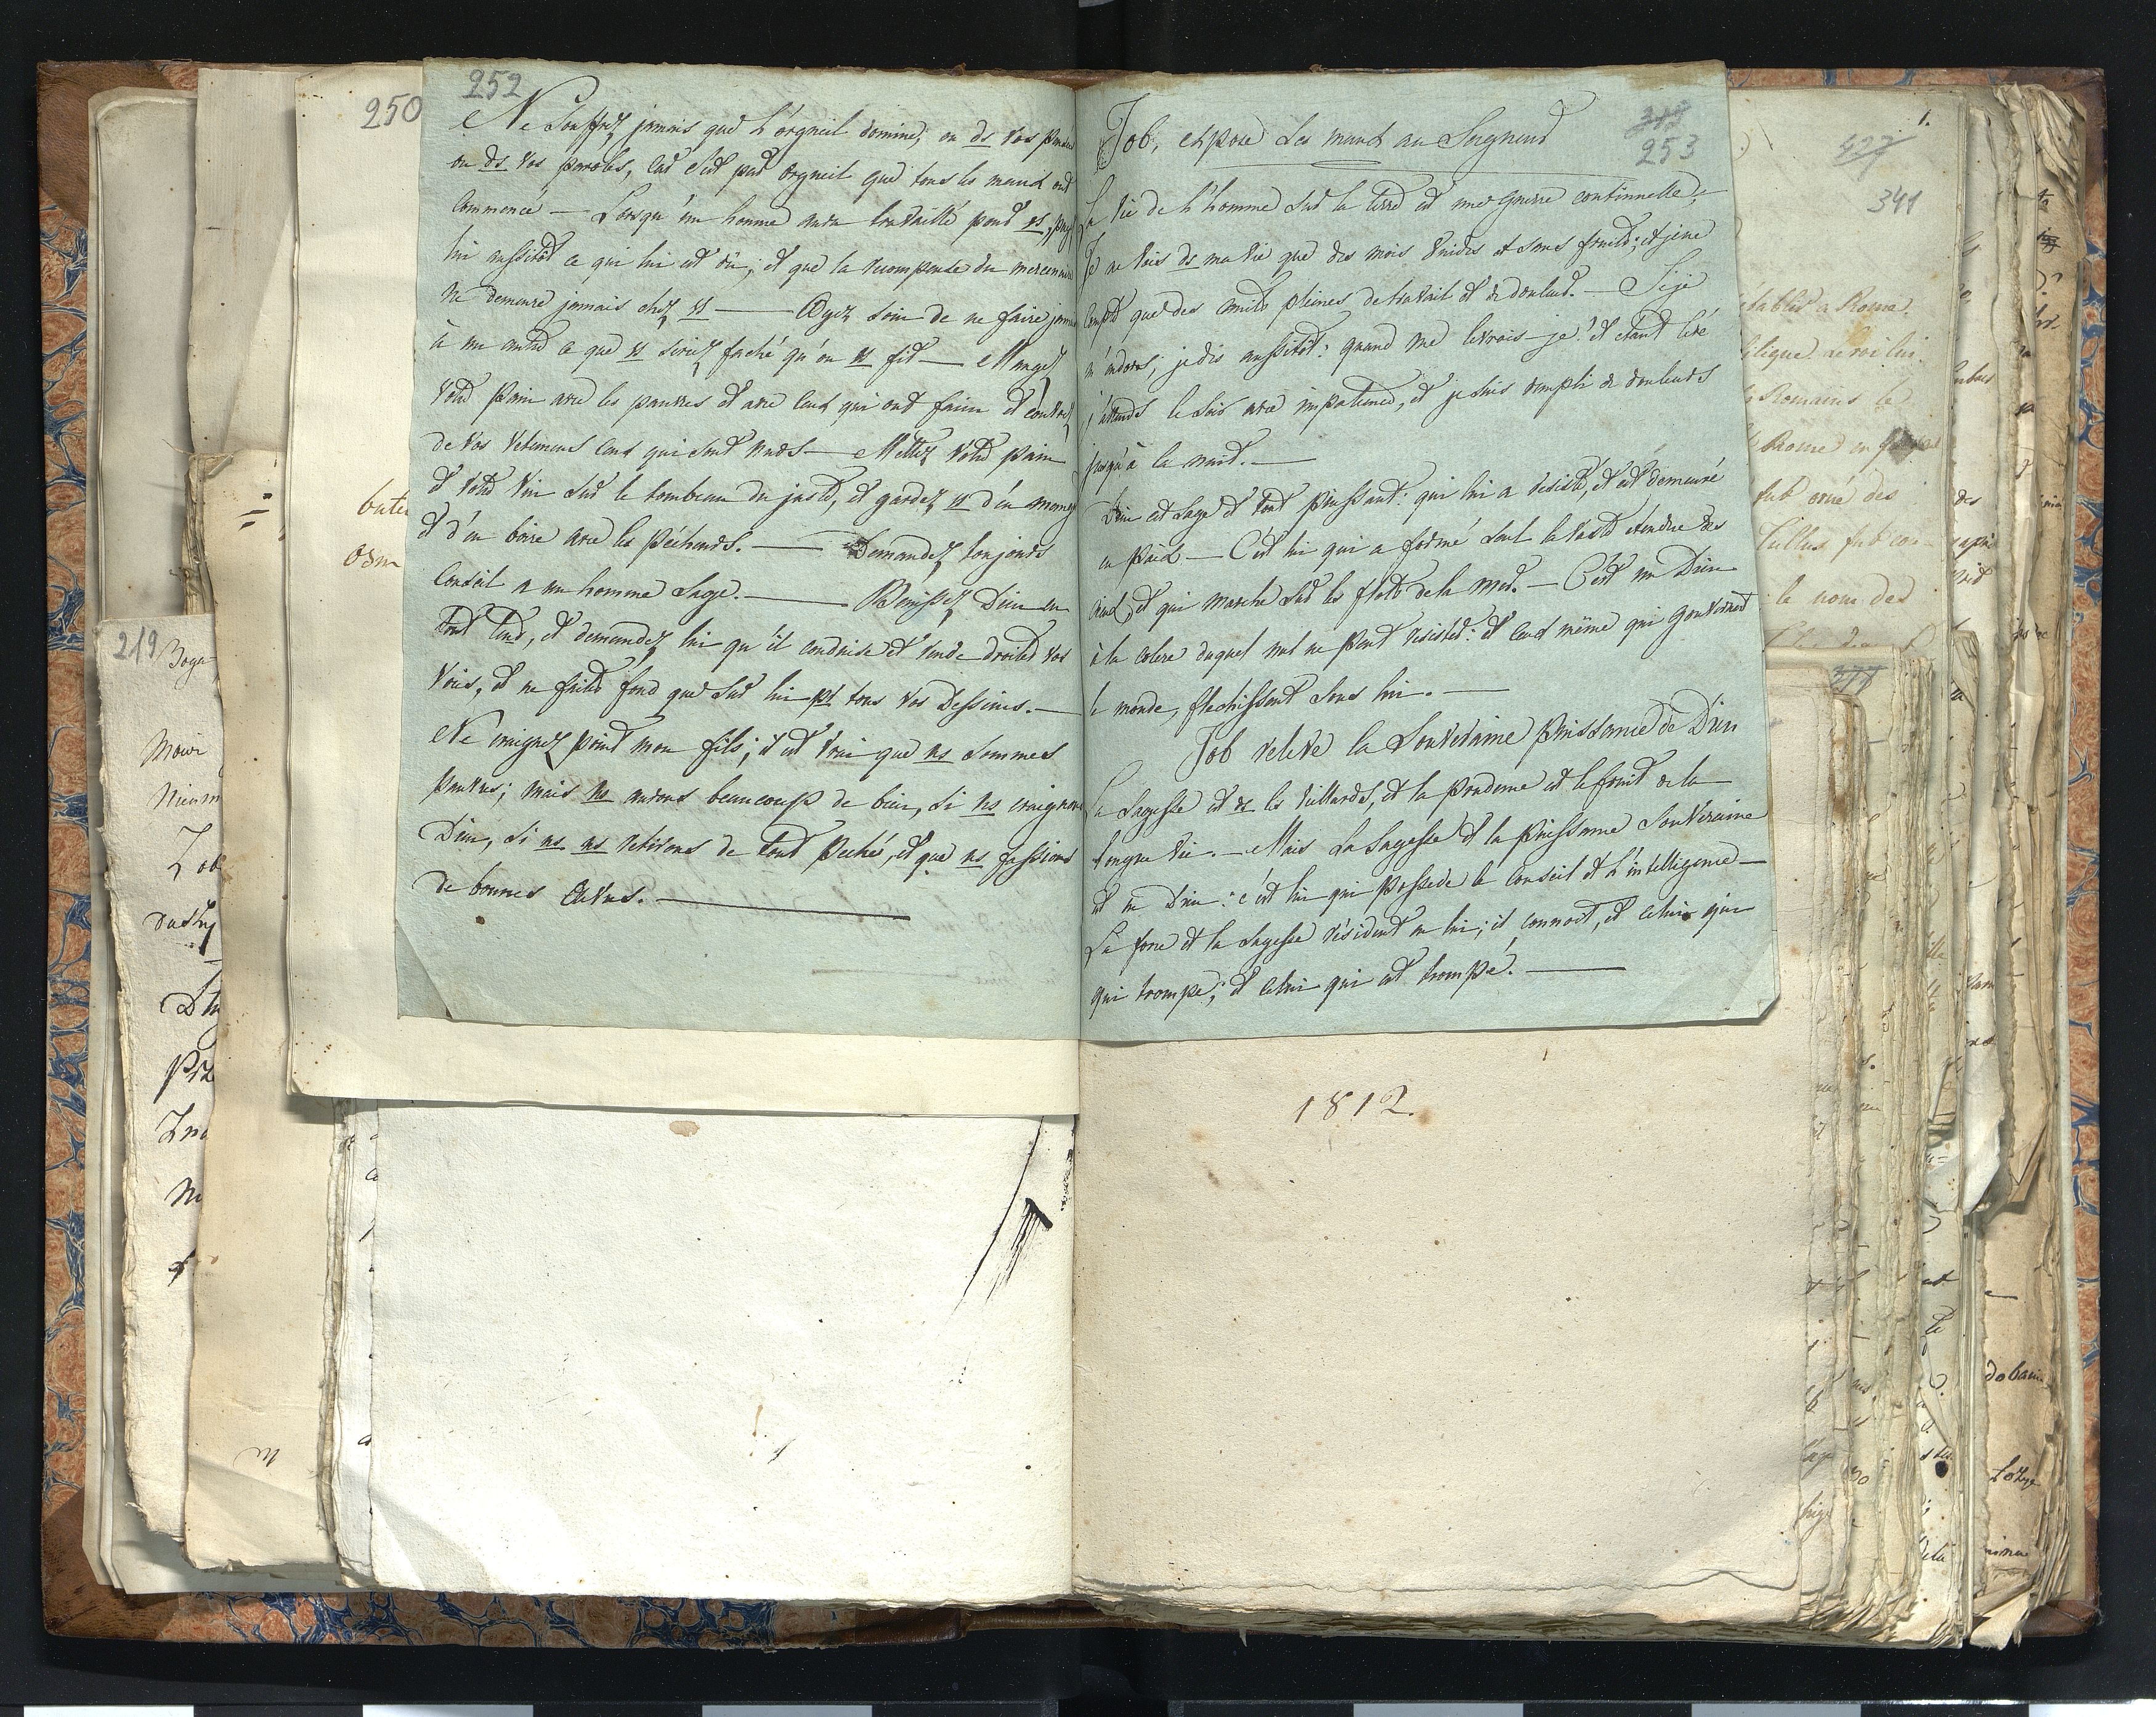 252
Ne Souffrez jamais que l'orgueil domine, ou ds vos pensées
ou ds vos paroles, car c'est par orgueil que tous les maux ont
Commencé — Lorsqu'un homme aura travaillé pour vs, payez
lui aussitot ce qui lui est dû; et que la recompense du mercenaire
Ne demeure jamais chez vs — Ayez soin de ne faire jamais
à un autre ce que vs seriez faché qu'on vs fit — Mangez
votre Pain avec les pauvres et avec ceux qui ont faim et couvrez
de vos Vetemens ceux qui sont nuds — Mettez votre pain
et votre Vin sur le tombeau du juste, et gardez vs d'en manger
et d'en boire avec les Pécheurs. — Demandez toujours
Conseil a un homme sage. — Benissez Dieu en
tout tems, et demandez lui qu'il conduise et rende droites vos
Voies, et ne faites fond que sur lui pr tous vos Desseins. —
Ne craignez point mon fils; il est vrai que ns sommes
Pauvres; mais ns aurons beaucoup de bien, si ns craignons
Dieu, si ns ns retirons de tout Peché, et que ns fassions
de bonnes œuvres. —
Job, expose ses maux au Seigneur
319
253
La Vie de l'homme sur la terre est une guerre continuelle,
Je ne vois ds ma vie que des mois vuides et sans fruits; et je ne
Compte que des nuits pleines de travail et de douleur. — Si je
m'endors, je dis aussitôt: quand me leverais-je! et etant levé
j'attends le soir avec impatience, et je suis rempli de douleurs
jusqu'à la nuit. —
Dieu est sage et tout Puissant: qui lui a resisté, et est demeuré
en Paix — C'est lui qui a formé seul la vaste étendue des
cieux, et qui marche sur les flots de la mer. — C'est un Dieu
à la colere duquel nul ne peut resister: et ceux même qui gouvernent
le monde, flechissent sous lui. —
Job releve la Souveraine puissance de Dieu
La Sagesse est ds les Vieillards, et la prudence est le fruit de la
longue vie. — Mais la Sagesse et la Puissance Souveraine
est en Dieu: c'est lui qui Possede le Conseil et l'intelligence —
La force et la Sagesse résident en lui; il connoit, et celui
qui trompe; et celui qui est trompé. —
1812.
250
219
427
341
1.